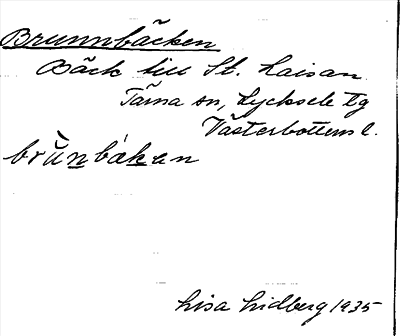 Brunnbäcken
Bäck till St. Laisan.
Tärna sn, Lycksele tg
Västerbottens l.
brùnbákan
Lisa Lidberg 1935